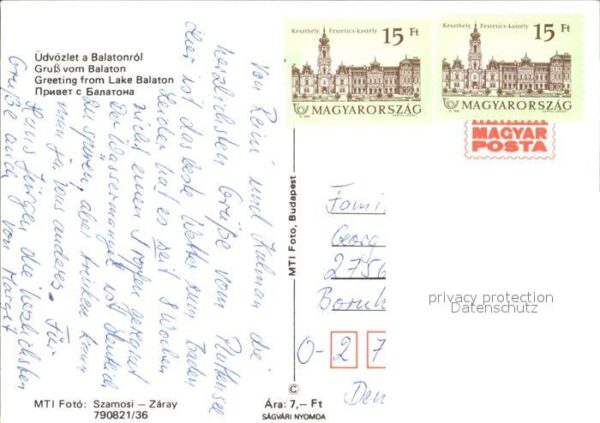 Üdvözlet a Balatonról
Gruß vom Balaton
Greeting from Lake Balaton
Привет с Балатона
Keszthely, Festetics-kastély
15 Ft
MAGYARORSZÁG
Keszthely, Festetics-kastély
15 Ft
MAGYARORSZÁG
MAGYAR
POSTA
Von Reni und Kalman die
herzlichsten Grüße vom Plattensee
Hier ist das beste Wetter zum Baden
Leider hat es seit 8 Wochen
nicht einen Tropfen geregnet
Der Wassermangel ist deutlich
zu spüren, aber trinken kann
man ja was anderes. Für
Hans Jürgen die herzlichsten
Grüße auch von Margot
MTI Foto, Budapest
Fami
Georg
2756
Boruh
O-27
Den
privacy protection
Datenschutz
MTI Fotó: Szamosi – Záray
790821/36
©
Ára: 7,– Ft
SÁGVÁRI NYOMDA